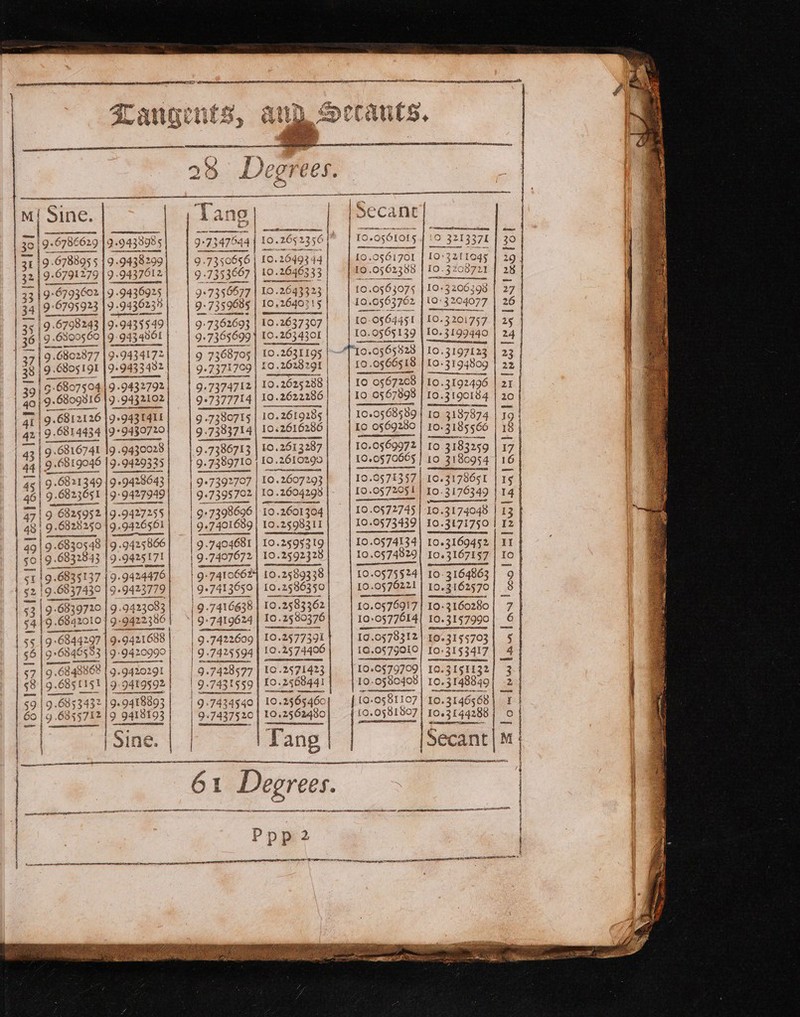 Tangents, and Secants.
28 Degrees.
M | Sine. | | Tang | | Secant | |
30 | 9.6786629 | 9.9438985 | 9.7347644 | 10.2652356 | 10.0561015 | 10 3213371 | 30
31 | 9.6788955 | 9.9438299 | 9.7350656 | 10.2649344 | 10.0561701 | 10.3211045 | 29
32 | 9.6791279 | 9.9437612 | 9.7353667 | 10.2646333 | 10.0562388 | 10.3208721 | 28
33 | 9.6793602 | 9.9436925 | 9.7356677 | 10.2643323 | 10.0563075 | 10.3206398 | 27
34 | 9.6795923 | 9.9436238 | 9.7359685 | 10.2640315 | 10.0563762 | 10.3204077 | 26
35 | 9.6798243 | 9.9435549 | 9.7362693 | 10.2637307 | 10.0564451 | 10.3201757 | 25
36 | 9.6800560 | 9.9434861 | 9.7365699 | 10.2634301 | 10.0565139 | 10.3199440 | 24
37 | 9.6802877 | 9.9434172 | 9 7368705 | 10.2631195 | 10.0565828 | 10.3197123 | 23
38 | 9.6805191 | 9.9433482 | 9.7371709 | 10.2628291 | 10.0566518 | 10.3194809 | 22
39 | 9.6807504 | 9.9432792 | 9.7374712 | 10.2625288 | 10 0567208 | 10.3192496 | 21
40 | 9.6809816 | 9.9432102 | 9.7377714 | 10.2622286 | 10 0567898 | 10.3190184 | 20
41 | 9.6812126 | 9.9431411 | 9.7380715 | 10.2619285 | 10.0568589 | 10 3187874 | 19
42 | 9.6814434 | 9.9430720 | 9.7383714 | 10.2616286 | 10 0569280 | 10.3185566 | 18
43 | 9.6816741 | 9.9430028 | 9.7386713 | 10.2613287 | 10.0569972 | 10 3183259 | 17
44 | 9.6819046 | 9.9429335 | 9.7389710 | 10.2610290 | 10.0570665 | 10 3180954 | 16
45 | 9.6821349 | 9.9428643 | 9.7392707 | 10.2607293 | 10.0571357 | 10.3178651 | 15
46 | 9.6823651 | 9.9427949 | 9.7395702 | 10.2604298 | 10.0572051 | 10.3176349 | 14
47 | 9 6825952 | 9.9427255 | 9.7398696 | 10.2601304 | 10.0572745 | 10.3174048 | 13
48 | 9.6828250 | 9.9426561 | 9.7401689 | 10.2598311 | 10.0573439 | 10.3171750 | 12
49 | 9.6830548 | 9.9425866 | 9.7404681 | 10.2595319 | 10.0574134 | 10.3169452 | 11
50 | 9.6832843 | 9.9425171 | 9.7407672 | 10.2592328 | 10.0574829 | 10.3167157 | 10
51 | 9.6835137 | 9.9424476 | 9.7410662 | 10.2589338 | 10.0575524 | 10.3164863 | 9
52 | 9.6837430 | 9.9423779 | 9.7413650 | 10.2586350 | 10.0576221 | 10.3162570 | 8
53 | 9.6839720 | 9.9423083 | 9.7416638 | 10.2583362 | 10.0576917 | 10.3160280 | 7
54 | 9.6842010 | 9.9422386 | 9.7419624 | 10.2580376 | 10.0577614 | 10.3157990 | 6
55 | 9.6844297 | 9.9421688 | 9.7422609 | 10.2577391 | 10.0578312 | 10.3155703 | 5
56 | 9.6846583 | 9.9420990 | 9.7425594 | 10.2574406 | 10.0579010 | 10.3153417 | 4
57 | 9.6848868 | 9.9420291 | 9.7428577 | 10.2571423 | 10.0579709 | 10.3151132 | 3
58 | 9.6851151 | 9.9419592 | 9.7431559 | 10.2568441 | 10.0580408 | 10.3148849 | 2
59 | 9.6853432 | 9.9418893 | 9.7434540 | 10.2565460 | 10.0581107 | 10.3146568 | 1
60 | 9.6855712 | 9 9418193 | 9.7437520 | 10.2562480 | 10.0581807 | 10.3144288 | 0
Sine. | Tang | Secant | M
61 Degrees.
Ppp 2